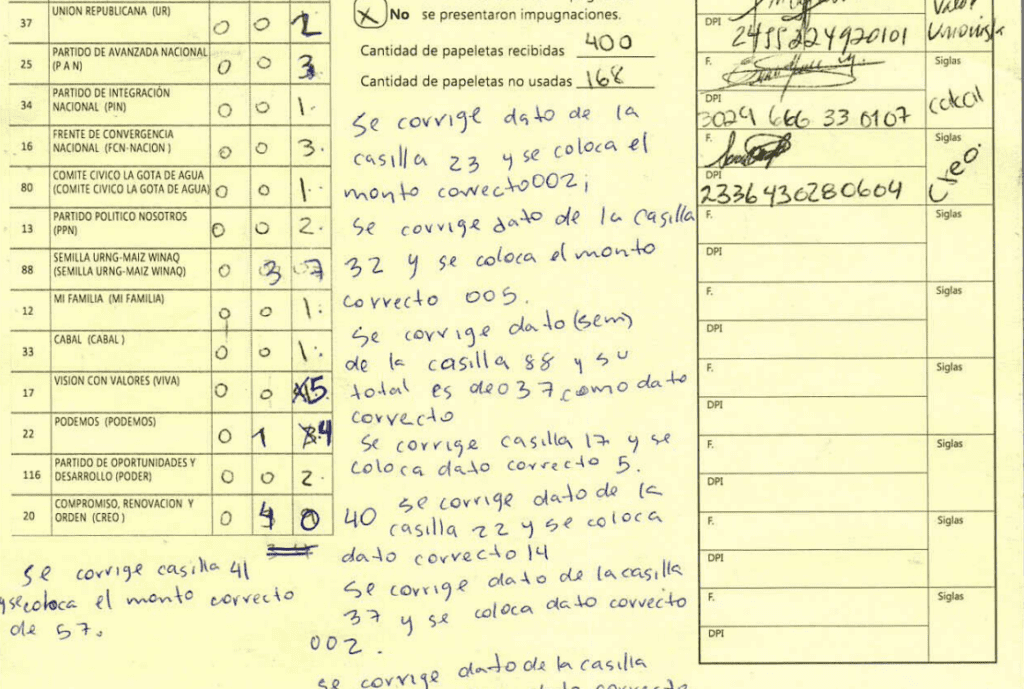 37 UNION REPUBLICANA (UR) 0 0 2
25 PARTIDO DE AVANZADA NACIONAL
(P A N) 0 0 3
34 PARTIDO DE INTEGRACIÓN
NACIONAL (PIN) 0 0 1
16 FRENTE DE CONVERGENCIA
NACIONAL (FCN-NACION ) 0 0 3
80 COMITE CIVICO LA GOTA DE AGUA
(COMITE CIVICO LA GOTA DE AGUA) 0 0 1
13 PARTIDO POLITICO NOSOTROS
(PPN) 0 0 2
88 SEMILLA URNG-MAIZ WINAQ
(SEMILLA URNG-MAIZ WINAQ) 0 3 7
12 MI FAMILIA (MI FAMILIA) 0 0 1
33 CABAL (CABAL ) 0 0 1
17 VISION CON VALORES (VIVA) 0 0 5
22 PODEMOS (PODEMOS) 0 1 4
116 PARTIDO DE OPORTUNIDADES Y
DESARROLLO (PODER) 0 0 2
20 COMPROMISO, RENOVACION Y
ORDEN (CREO ) 0 4 0
se corrige casilla 41
y se coloca el monto correcto
de 57.
X No se presentaron impugnaciones.
Cantidad de papeletas recibidas 400
Cantidad de papeletas no usadas 168
Se corrige dato de la
casilla 23 y se coloca el
monto correcto 002;
se corrige dato de la casilla
32 y se coloca el monto
correcto 005.
Se corrige dato (sem)
de la casilla 88 y su
total es de 037 como dato
correcto
se corrige casilla 17 y se
coloca dato correcto 5.
40 se corrige dato de la
casilla 22 y se coloca
dato correcto 14
Se corrige dato de la casilla
37 y se coloca dato correcto
002.
se corrige dato de la casilla
dato correcto
DPI 2455224920101
Valor
Unionista
F.
Siglas
DPI
3029 666 33 0107
F.
Siglas
DPI
2336430280604
Creo.
F.
Siglas
DPI
F.
Siglas
DPI
F.
Siglas
DPI
F.
Siglas
DPI
F.
Siglas
DPI
F.
Siglas
DPI